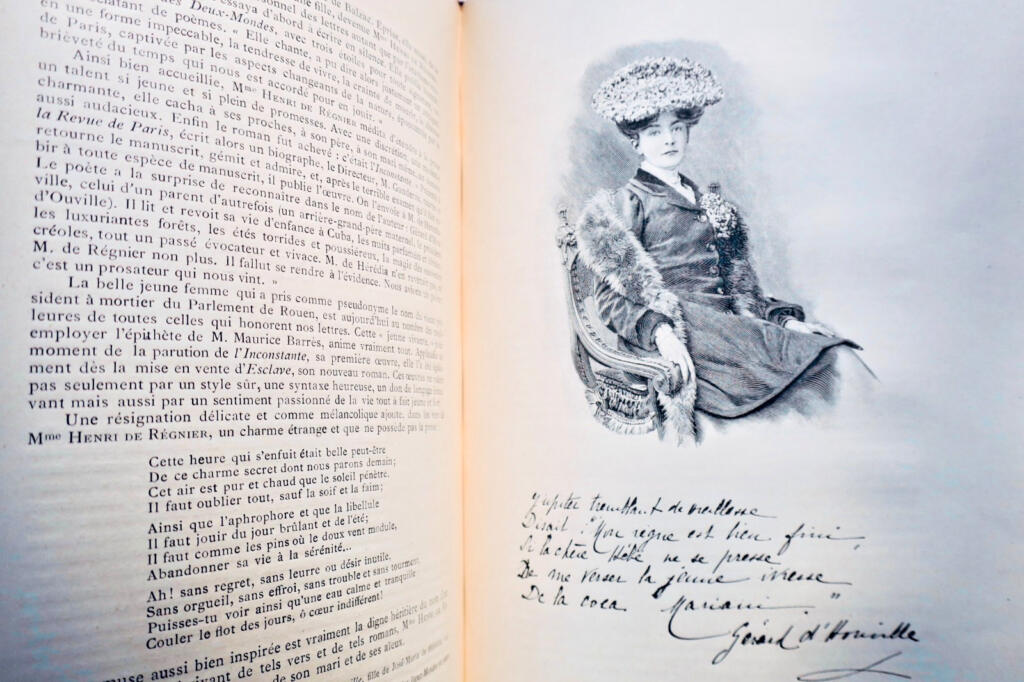 de Balzac.
essaya d'abord à écrire en silence. Elle
Deux-Mondes, avec trois étoiles pour
de poèmes. " Elle chante, a pu dire alors
en une forme impeccable, la tendresse de vivre, la crainte de mourir, la
de Paris, captivée par les aspects changeants de la nature,
brièveté du temps qui nous est accordé pour en jouir. "
Ainsi bien accueillie, Mme HENRI DE RÉGNIER médita d'étendre à la prose
un talent si jeune et si plein de promesses. Avec une discrétion, une
charmante, elle cacha à ses proches, à son père, à son mari même, un
aussi audacieux. Enfin le roman fut achevé : c'était l'Inconstante.
la Revue de Paris, écrit alors un biographe, le Directeur, M. Ganderax,
retourne le manuscrit, gémit et admire, et, après le terrible examen
bir à toute espèce de manuscrit, il publie l'œuvre. On l'envoie à M. de Heredia.
Le poète a la surprise de reconnaître dans le nom de l'auteur : Gérard d'Houville,
ville, celui d'un parent d'autrefois (un arrière-grand-père maternel, le président
d'Ouville). Il lit et revoit sa vie d'enfance à Cuba, les nuits parfumées et
les luxuriantes forêts, les étés torrides et poussiéreux, la magie des
créoles, tout un passé évocateur et vivace. M. de Hérédia n'en revenait pas,
M. de Régnier non plus. Il fallut se rendre à l'évidence. Nous avions un
c'est un prosateur qui nous vint. "
La belle jeune femme qui a pris comme pseudonyme le nom du vieux
sident à mortier du Parlement de Rouen, est aujourd'hui au nombre des meil-
leures de toutes celles qui honorent nos lettres. Cette " jeune vivante, " pour
employer l'épithète de M. Maurice Barrès, anime vraiment tout. Applaudie au
moment de la parution de l'Inconstante, sa première œuvre, elle l'a été
ment dès la mise en vente d'Esclave, son nouveau roman. Ces œuvres ne valent
pas seulement par un style sûr, une syntaxe heureuse, un don de langage
vant mais aussi par un sentiment passionné de la vie tout à fait jeune et
Une résignation délicate et comme mélancolique ajoute, dans les vers de
Mme HENRI DE RÉGNIER, un charme étrange et que ne possède pas la prose :
Cette heure qui s'enfuit était belle peut-être
De ce charme secret dont nous parons demain;
Cet air est pur et chaud que le soleil pénètre.
Il faut oublier tout, sauf la soif et la faim;
Ainsi que l'aphrophore et que la libellule
Il faut jouir du jour brûlant et de l'été;
Il faut comme les pins où le doux vent module,
Abandonner sa vie à la sérénité...
Ah! sans regret, sans leurre ou désir inutile,
Sans orgueil, sans effroi, sans trouble et sans tourment,
Puisses-tu voir ainsi qu'une eau calme et tranquille
Couler le flot des jours, ô cœur indifférent!
muse aussi bien inspirée est vraiment la digne héritière du nom
vivant de tels vers et de tels romans, Mme HENRI DE
de son mari et de ses aïeux.
fille de José-Maria de Heredia
Jupiter tremblant de vieillesse
Dirait : "Mon règne est bien fini,
Si la chère Hébé ne se presse
De me verser la jeune ivresse
De la coca Mariani."
Gérard d'Houville